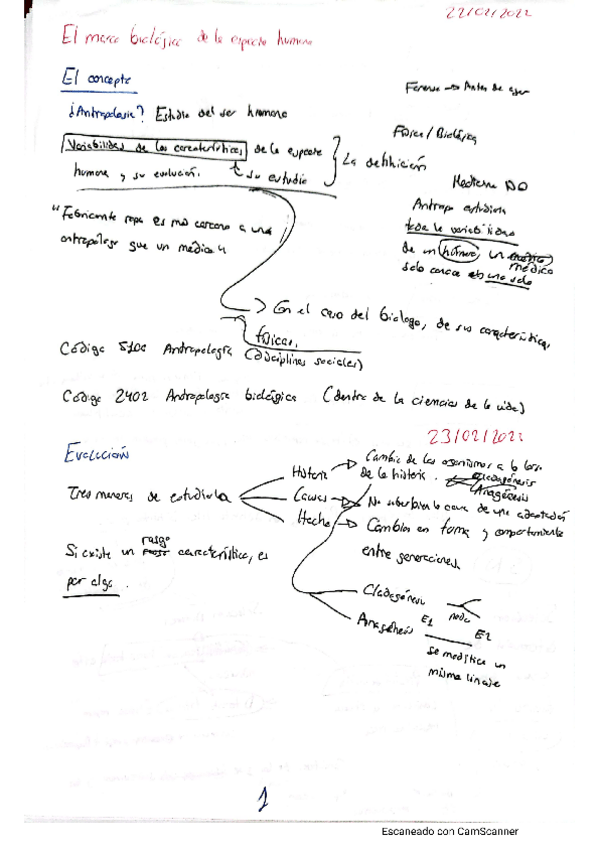 22/02/2022
El marco biológico de la especie humana
El concepto
¿Antropología? Estudio del ser humano
Forense → Antes de ayer
Física/Biológica
Variabilidad de las características de la especie
humana y su evolución. su estudio
La definición
Medicina NO
Antrop estudia
toda la variabilidad
de un humano, un médico
solo conoce uno solo
"Fabricante ropa es más cercano a un
antropólogo que un médico"
En el caso del biólogo, de sus características
físicas.
Código 5100 Antropología (disciplinas sociales)
Código 2402 Antropología biológica (dentro de la ciencias de la vida)
23/02/2022
Evolución
Tres maneras de estudiarla
Historia → Cambio de los organismos a lo largo
de la historia.
Anagénesis
Causas → No sabe bien la causa de una adaptación
Hecho → Cambios en forma y comportamiento
entre generaciones.
Si existe un rasgo característico, es
por algo.
Cladogénesis nodo
Anagénesis E1 E2
se modifica un
mismo linaje
1
Escaneado con CamScanner